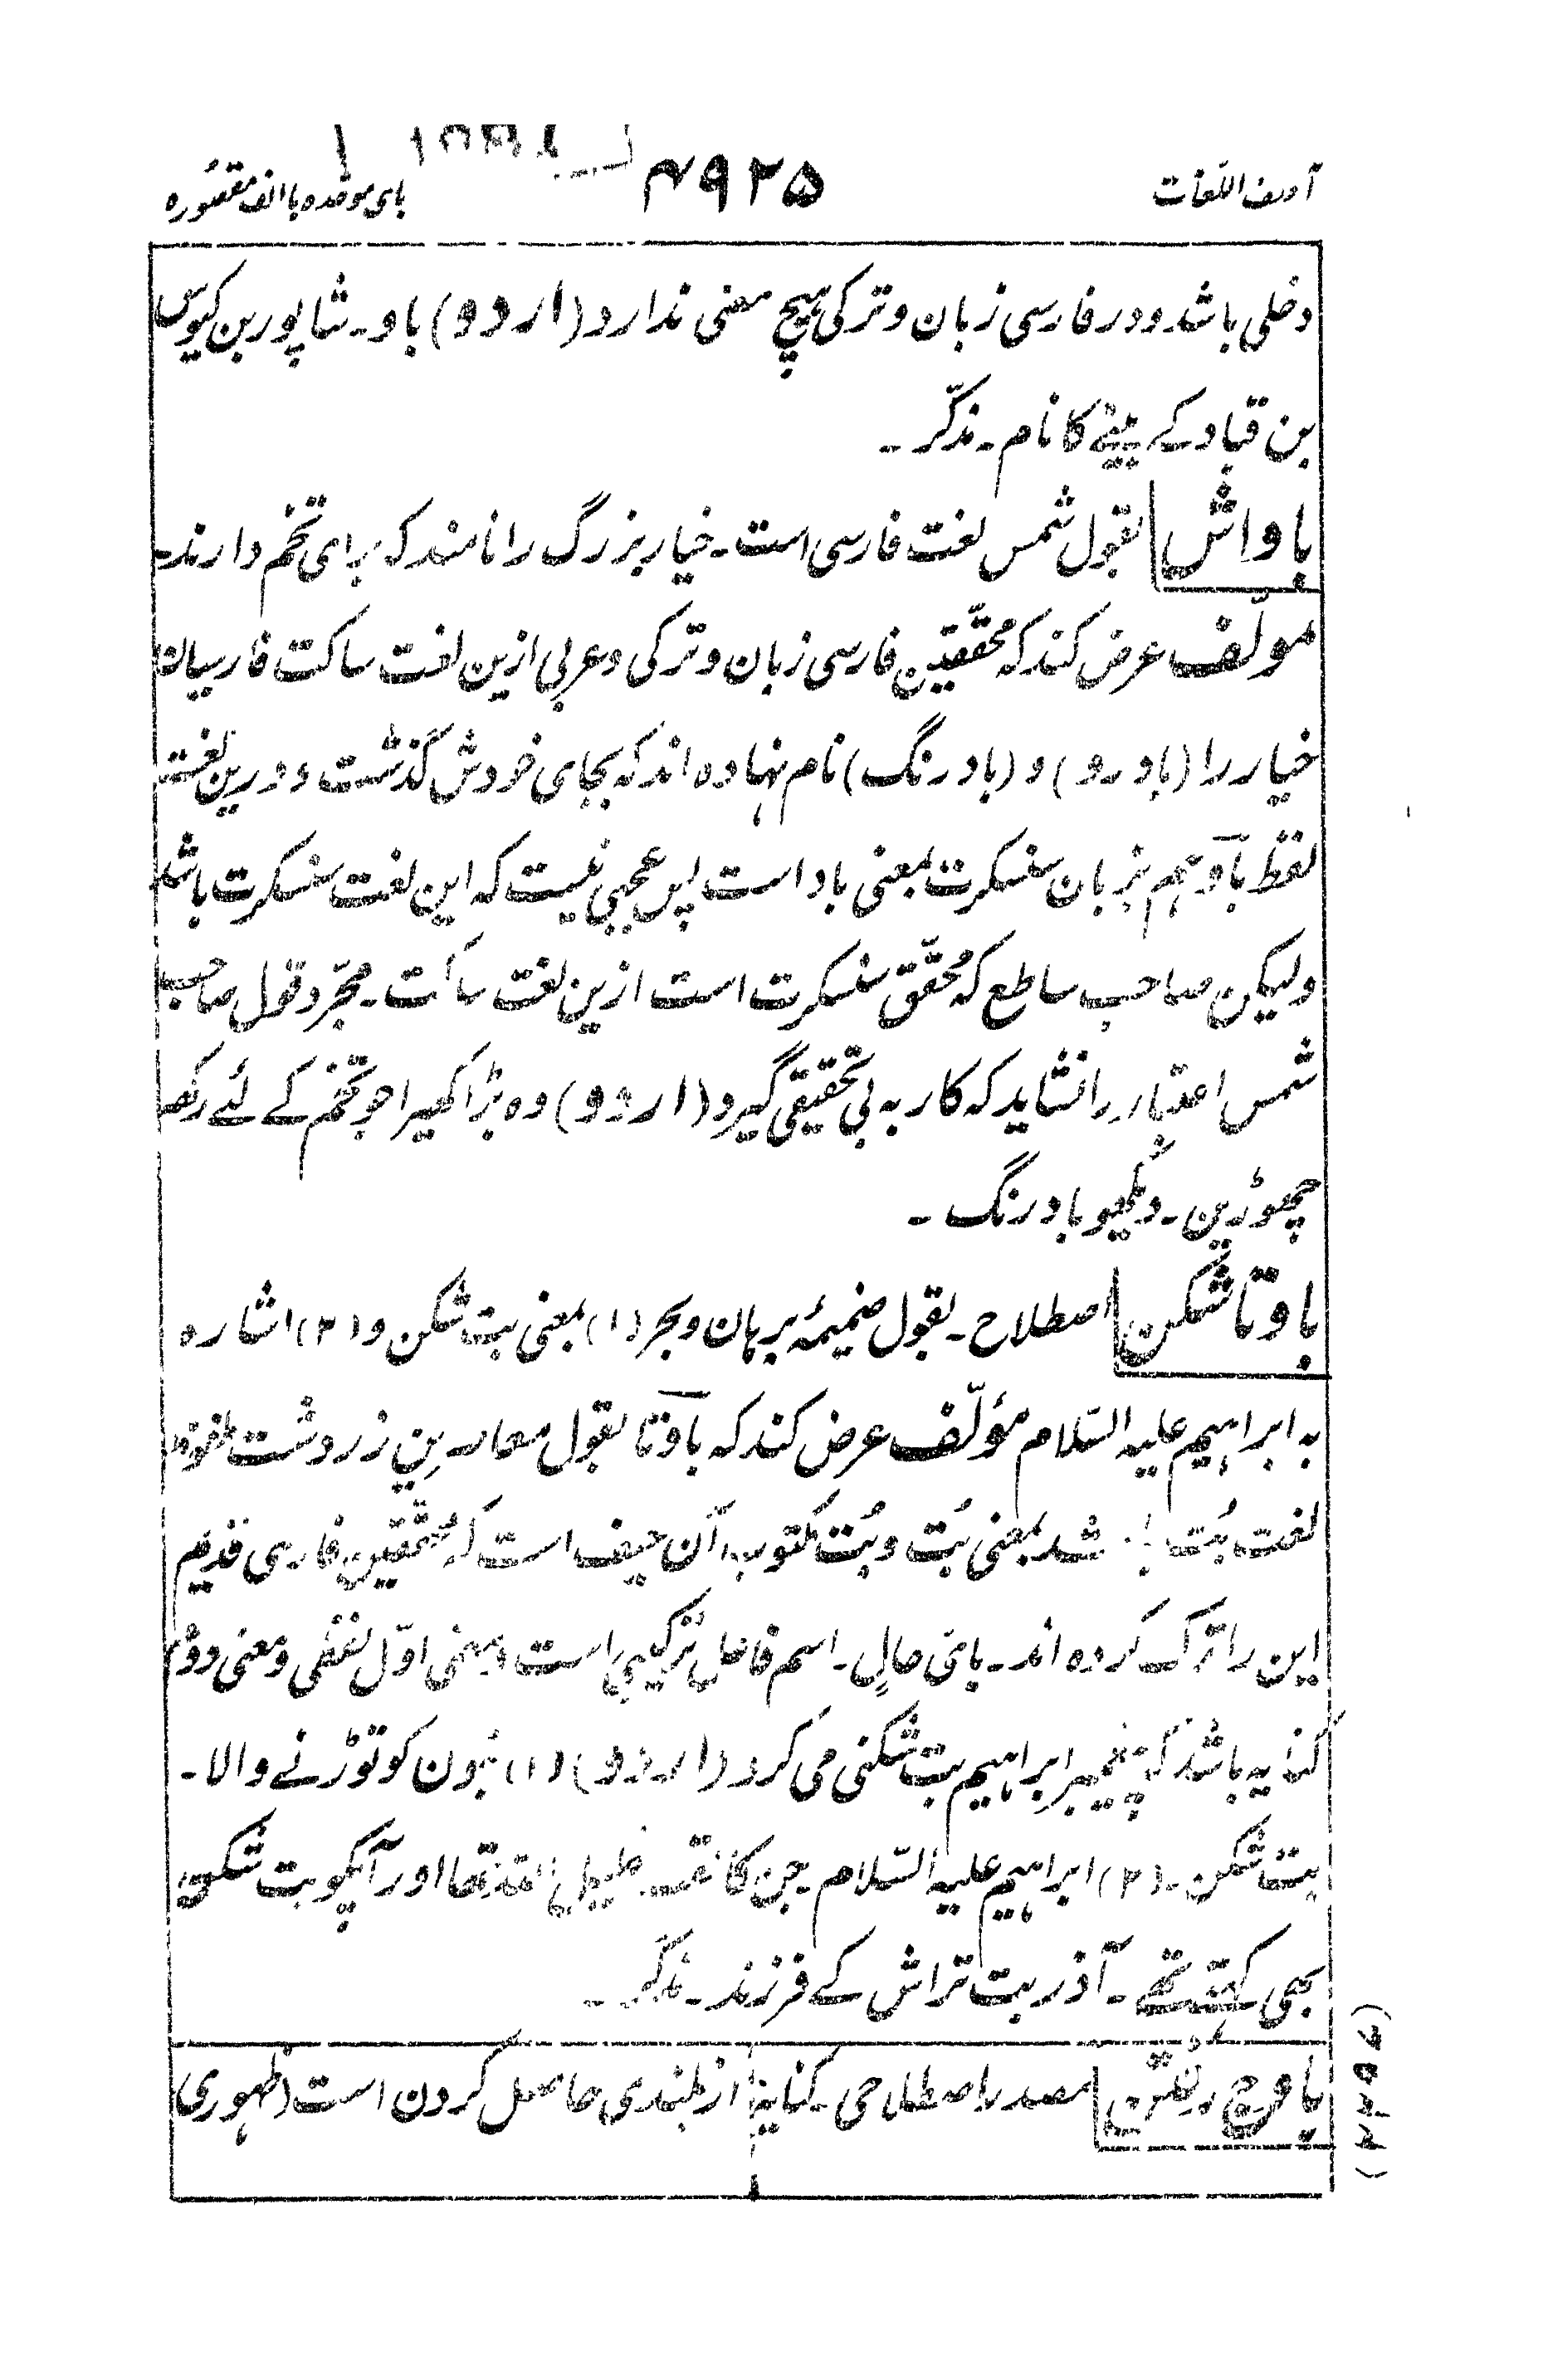 آصف اللغات
۴۹۲۵
بای موحده با الف مقصوره
دخلی باشد و در فارسی زبان و ترکی هیچ معنی ندارد (اردو) باو۔ شاپور بن کیوس
بن قباد کے بیٹے کا نام۔ مذکّر۔
باواش بقول شمس لغت فارسی است۔ خیار بزرگ را نامند که برای تخم دارند۔
مولّف عرض کند که محقّقین فارسی زبان و ترکی و عربی ازین لغت ساکت فارسیان
خیار را (بادرو) و (بادرنگ) نام نهاده اند که بجای خودش گذشت و درین لغت
لفظ باو هم بزبان سنسکرت بمعنی باد است پس عجبی نیست که این لغت سنسکرت باشد
ولیکن صاحب ساطع که محقّق سنسکرت است ازین لغت ساکت۔ مجرّد قول صاحب
شمس اعتبار را نشاید که کار به بی تحقیقی گیرد (اردو) وه بڑا کھیرا جو تخم کے لئے رکھ
چھوڑین۔ دیکھو بادرنگ۔
باوتا شکن اصطلاح۔ بقول ضمیمهٔ برهان و بحر (۱) بمعنی بت شکن و (۲) اشاره
به ابراهیم علیه السّلام مؤلّف عرض کند که باوتا بقول معاصرین زردشت
لغت بُت شد بمعنی بُت و بُت آن حیف است که محقّقین فارسی قدیم
این را ترک کرده اند۔ باقی حال۔ اسم فاعل ترکیبی است و معنی اوّل لفظی و معنی دوّم
کنایه باشد که پیغمبر ابراهیم بت شکنی می کرد (اردو) (۱) بتون کو توڑنے والا۔
بت شکن۔ (۲) ابراهیم علیه السّلام۔ جن کا لقب خلیل الله تھا اور آپکو بت شکن
بھی کہتے تھے۔ آذر بت تراش کے فرزند۔ مذکّر۔
باوج رفتن مصدر اصطلاحی۔ کنایه از بلندی حاصل کردن است (ظهوری